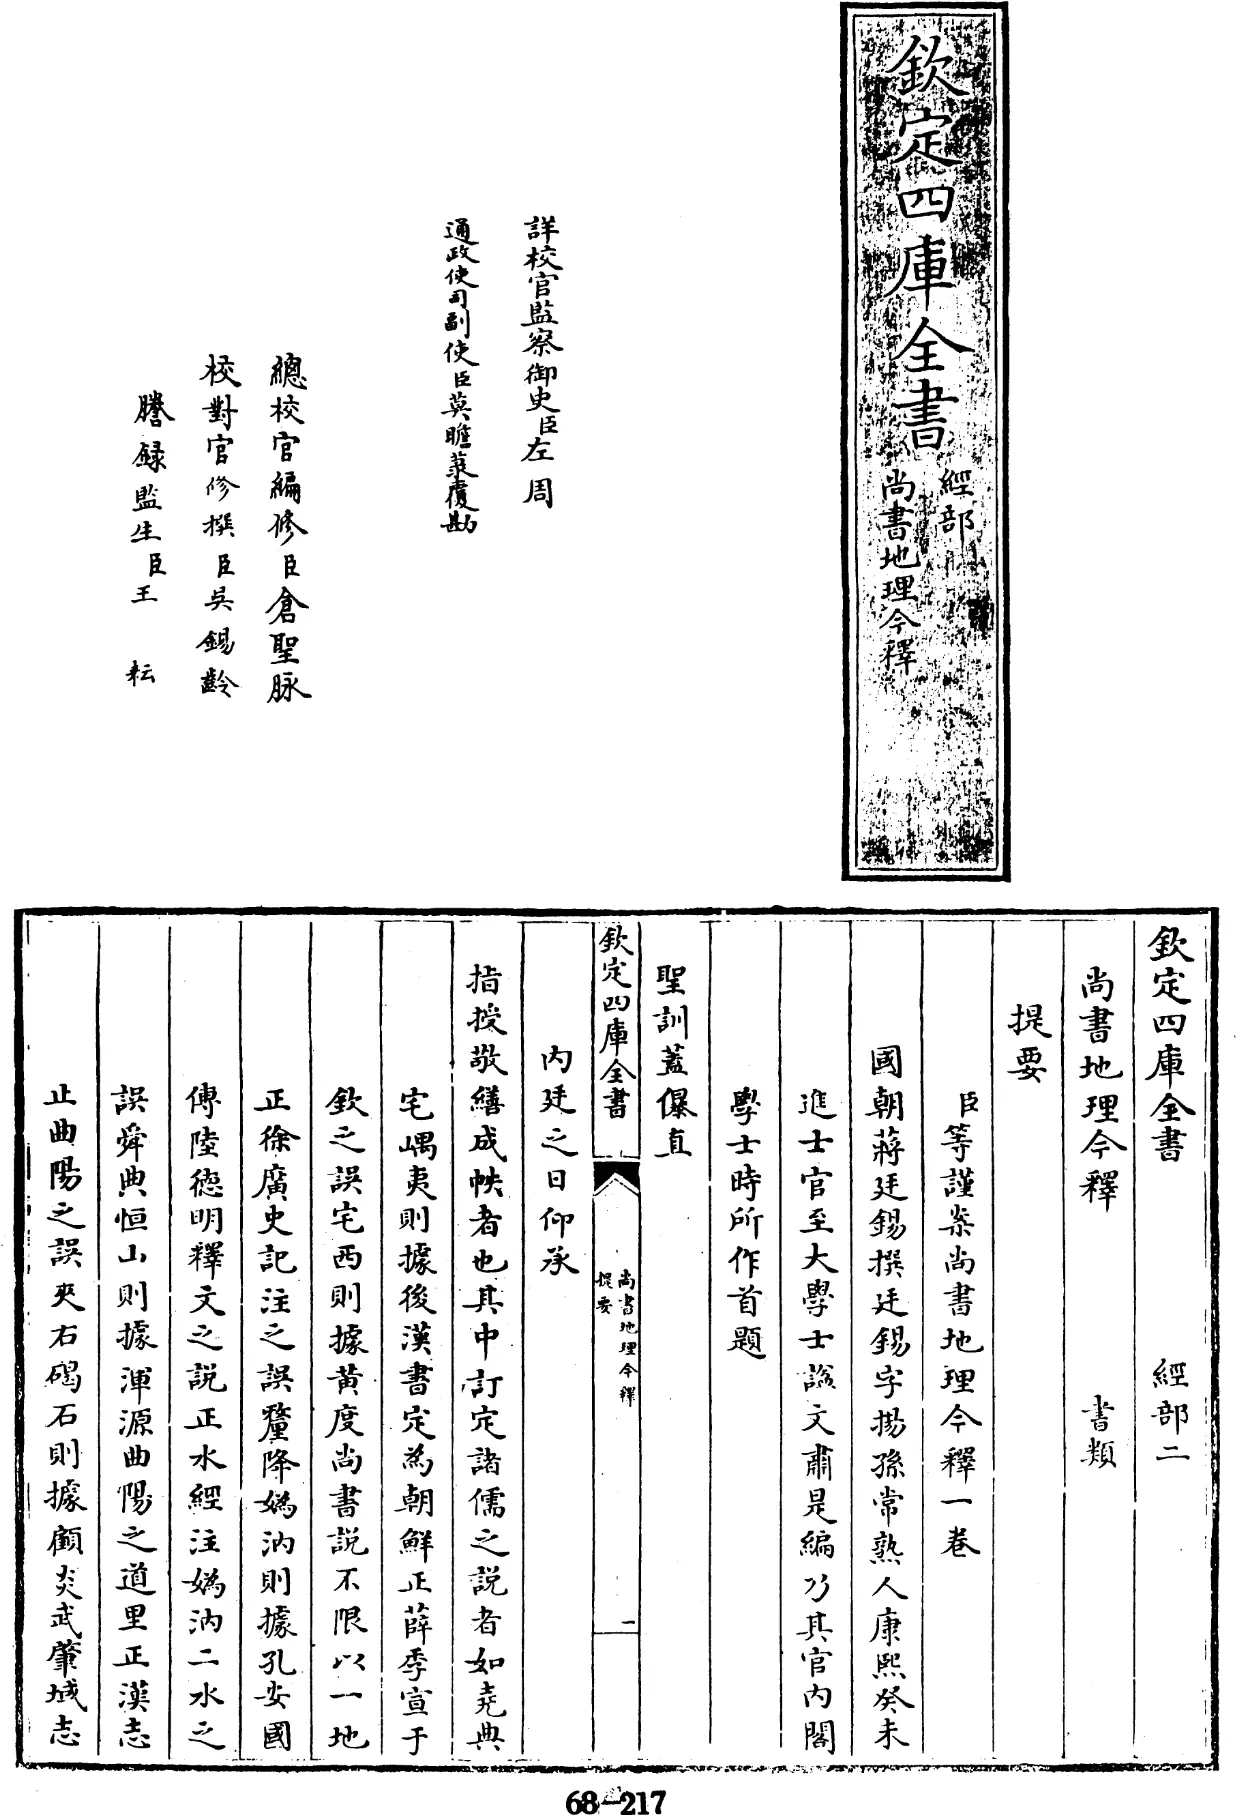 欽定四庫全書
經部
尚書地理今釋
詳校官監察御史臣左周
通政使司副使臣莫瞻菉覆勘
總校官編修臣倉聖脉
校對官修撰臣吳錫齡
謄錄監生臣王耘
欽定四庫全書 經部二
尚書地理今釋 書類
提要
臣等謹案尚書地理今釋一卷
國朝蔣廷錫撰廷錫字揚孫常熟人康熙癸未
進士官至大學士諡文肅是編乃其官內閣
學士時所作首題
聖訓蓋儤直
欽定四庫全書
尚書地理今釋
提要
一
內廷之日仰承
指授敬繕成帙者也其中訂定諸儒之説者如堯典
宅嵎夷則據後漢書定為朝鮮正薛季宣于
欽之誤宅西則據黄度尚書説不限以一地
正徐廣史記注之誤釐降媯汭則據孔安國
傳陸德明釋文之説正水經注媯汭二水之
誤舜典恒山則據渾源曲陽之道里正漢志
止曲陽之誤夾右碣石則據顧炎武肇域志
68-217